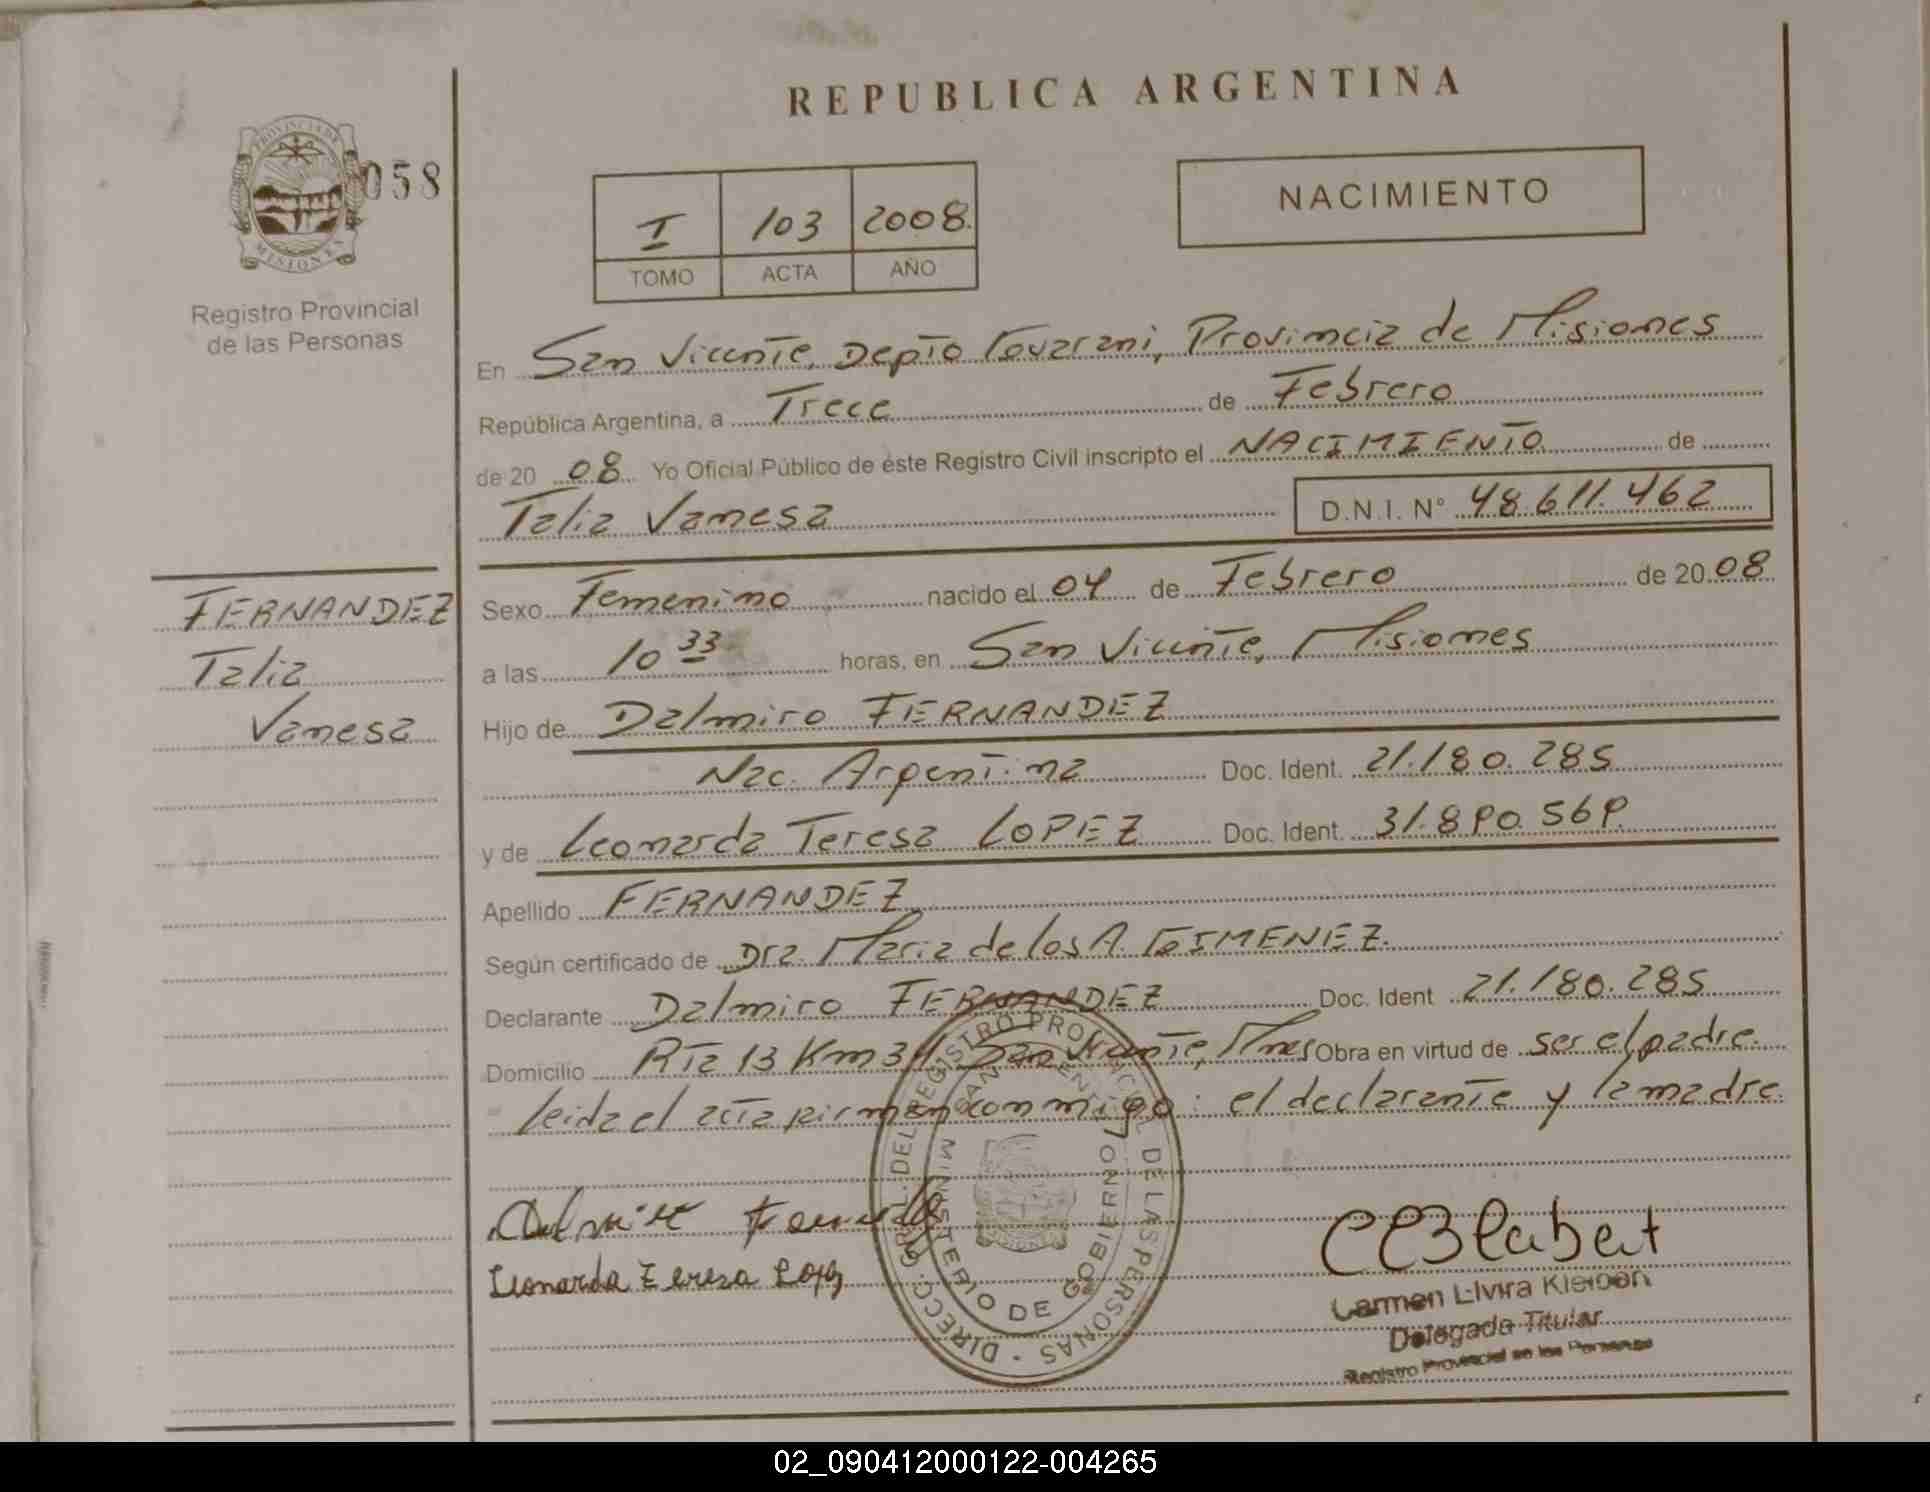 REPUBLICA ARGENTINA
PROVINCIA DE
MISIONES
058
Registro Provincial
de las Personas
I 103 2008.
TOMO ACTA AÑO
NACIMIENTO
En San Vicente, Depto Guarani, Provincia de Misiones
República Argentina, a Trece de Febrero
de 20 08 Yo Oficial Público de éste Registro Civil inscripto el NACIMIENTO de
Talia Vanesa D.N.I. N° 48.611.462
FERNANDEZ
Talia
Vanesa
Sexo Femenino nacido el 04 de Febrero de 20 08
a las 10 33 horas, en San Vicente, Misiones
Hijo de Dalmiro FERNANDEZ
Nac. Argentina Doc. Ident. 21.180.285
y de Leonarda Teresa LOPEZ Doc. Ident. 31.890.569
Apellido FERNANDEZ
Según certificado de Dra. Maria de los A. GIMENEZ.
Declarante Dalmiro FERNANDEZ Doc. Ident 21.180.285
Domicilio Rta 13 Km 34 San Vicente, Mnes Obra en virtud de ser el padre.
leida el acta firman conmigo: el declarante y la madre.
Leonarda Tereza Lopez
DIRECC. GRAL. DEL REGISTRO PROVINCIAL DE LAS PERSONAS
MINISTERIO DE GOBIERNO
SAN VICENTE
MISIONES
Carmen
Delegada Titular
Registro Provincial de las Personas
02_090412000122-004265